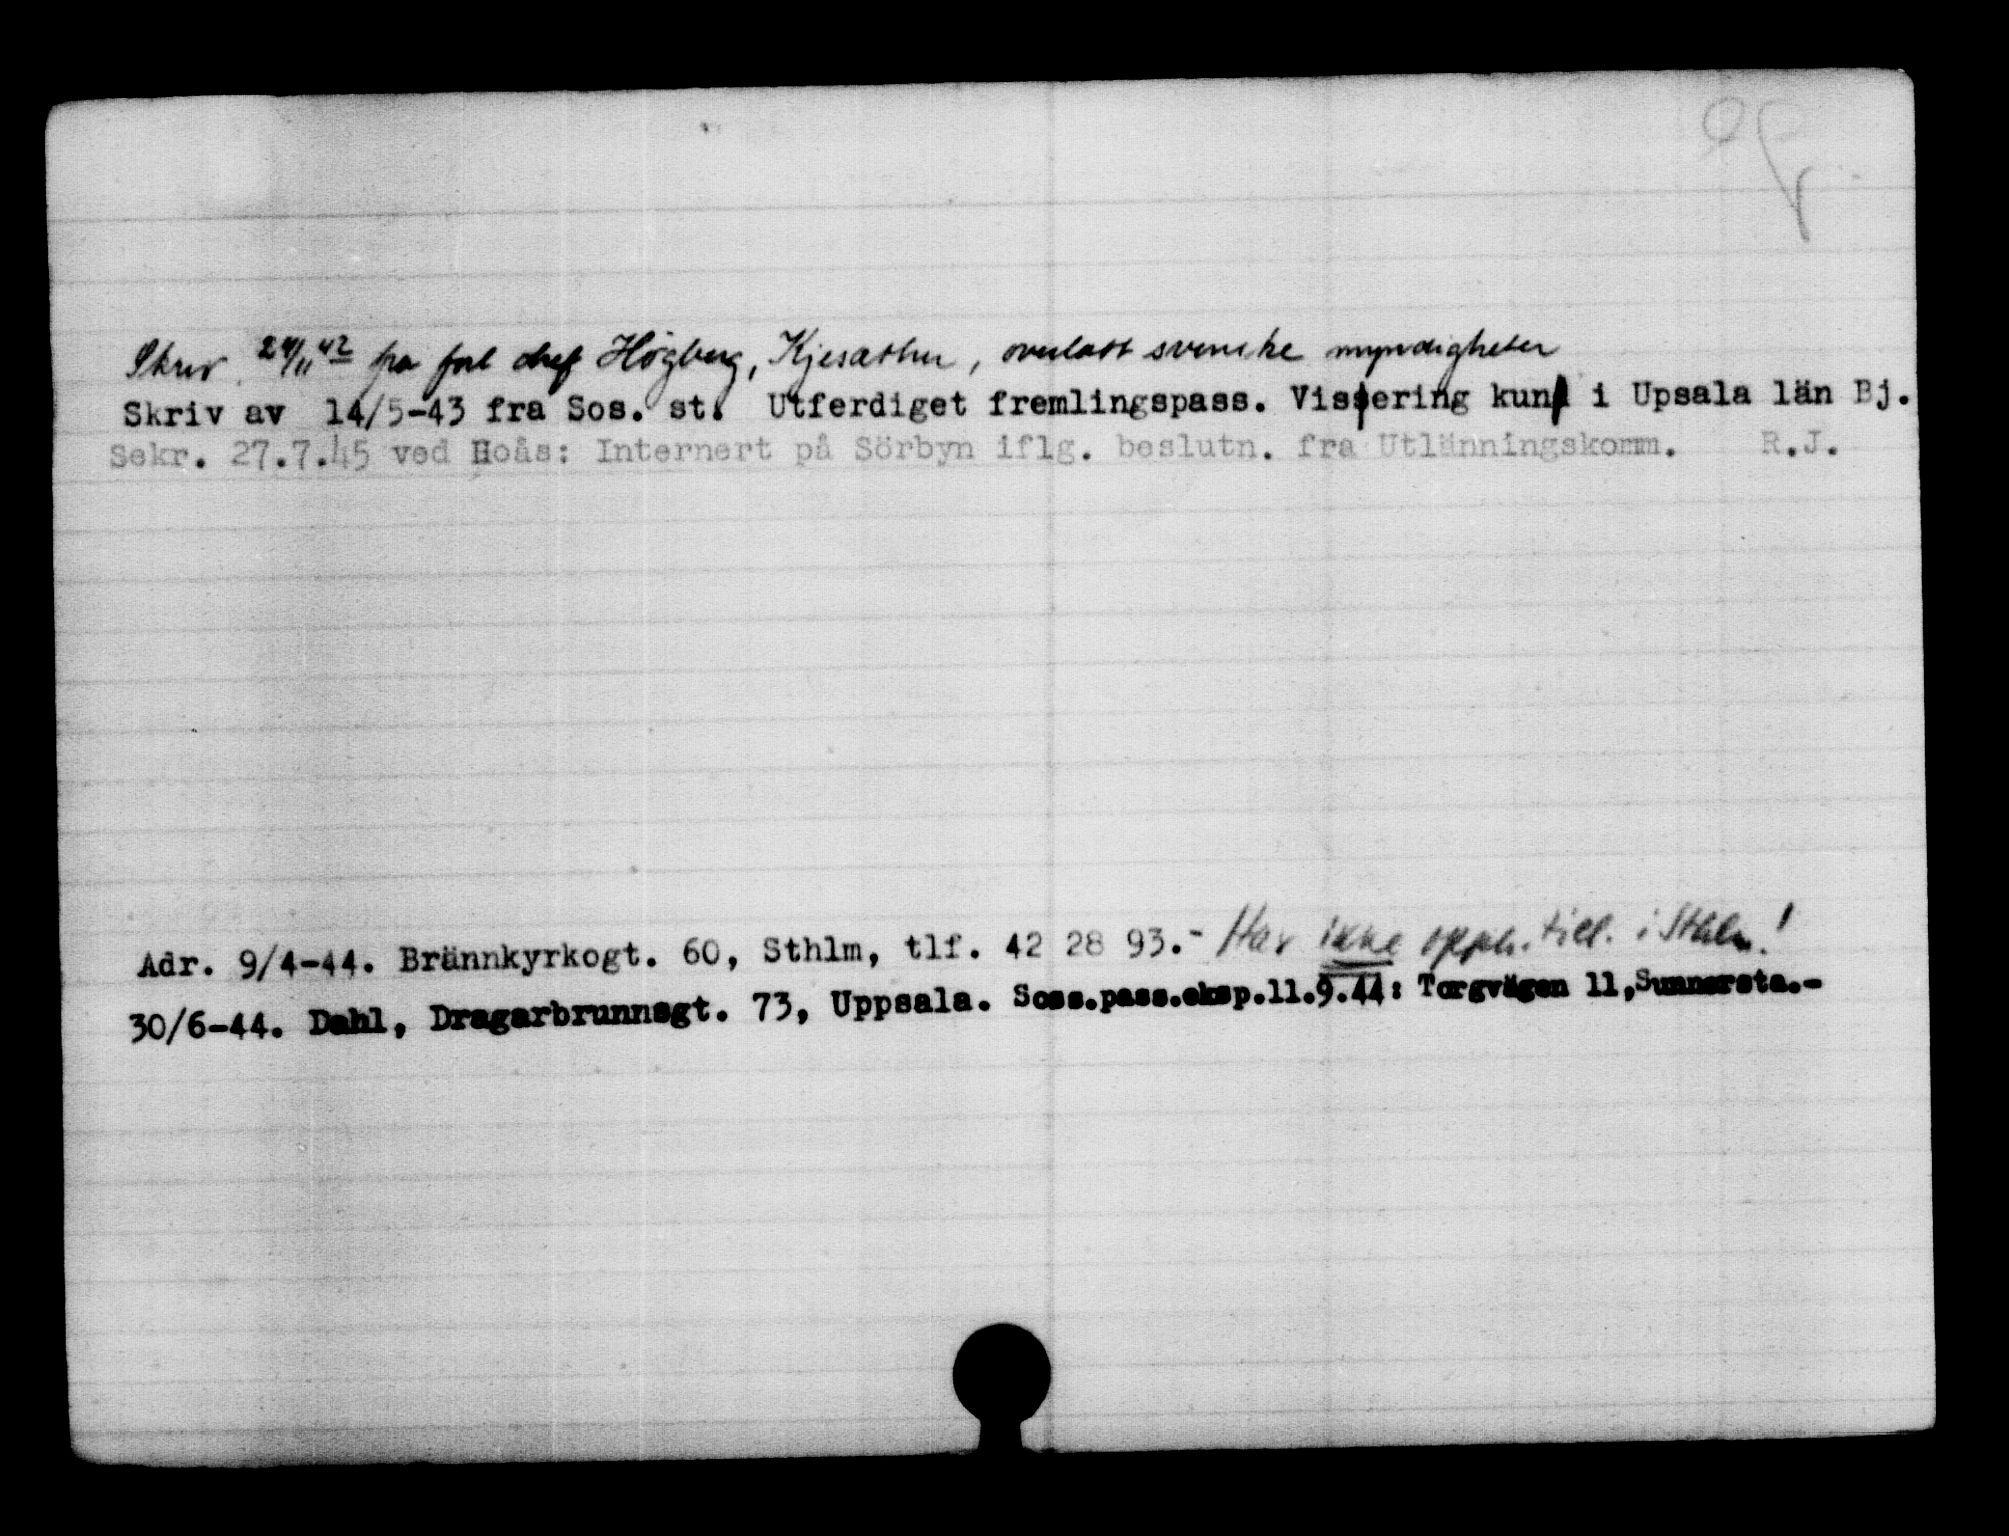 Skriv. 24/11 42 fra forl chef Högberg, Kjesäther, overlatt svenske myndigheter
Skriv av 14/5-43 fra Sos. st. Utferdiget fremlingspass. Visering kun i Upsala län Bj.
Sekr. 27.7.45 ved Hoås: Internert på Sörbyn iflg. beslutn. fra Utlänningskomm. R.J.
Adr. 9/4-44. Brännkyrkogt. 60, Sthlm, tlf. 42 28 93.- Har ikke opph. till. i Sthlm!
30/6-44. Dahl, Dragarbrunnsgt. 73, Uppsala. Soss.pass.eksp.11.9.44: Torgvägen 11,Sunnersta.-